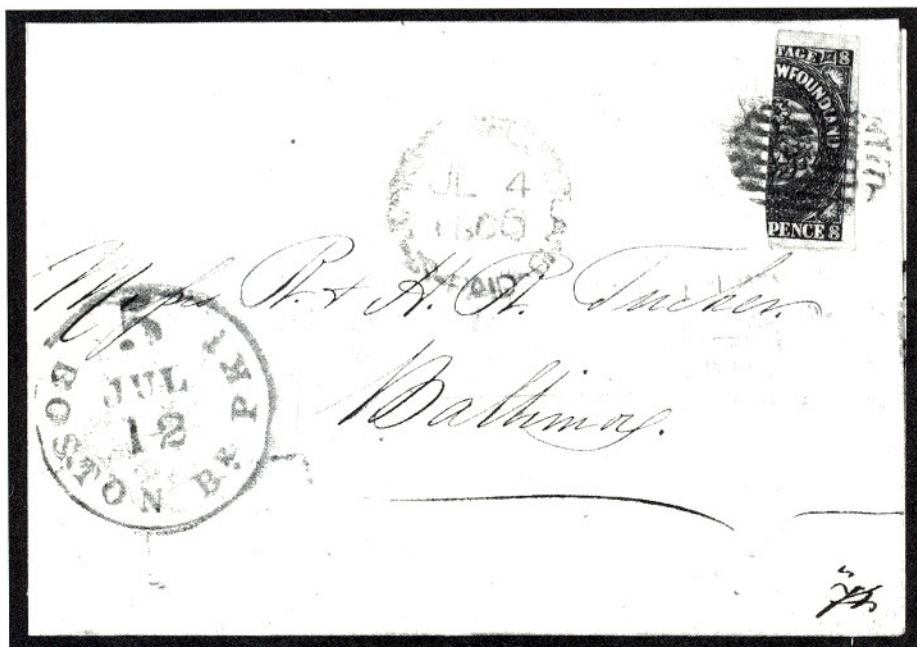 TAGE 8
WFOUNDLAND
PENCE 8
JL 4
1860
PAID
Messrs R. & H. R. Tucker.
Baltimore.
5
JUL
12
BOSTON Br. PKT